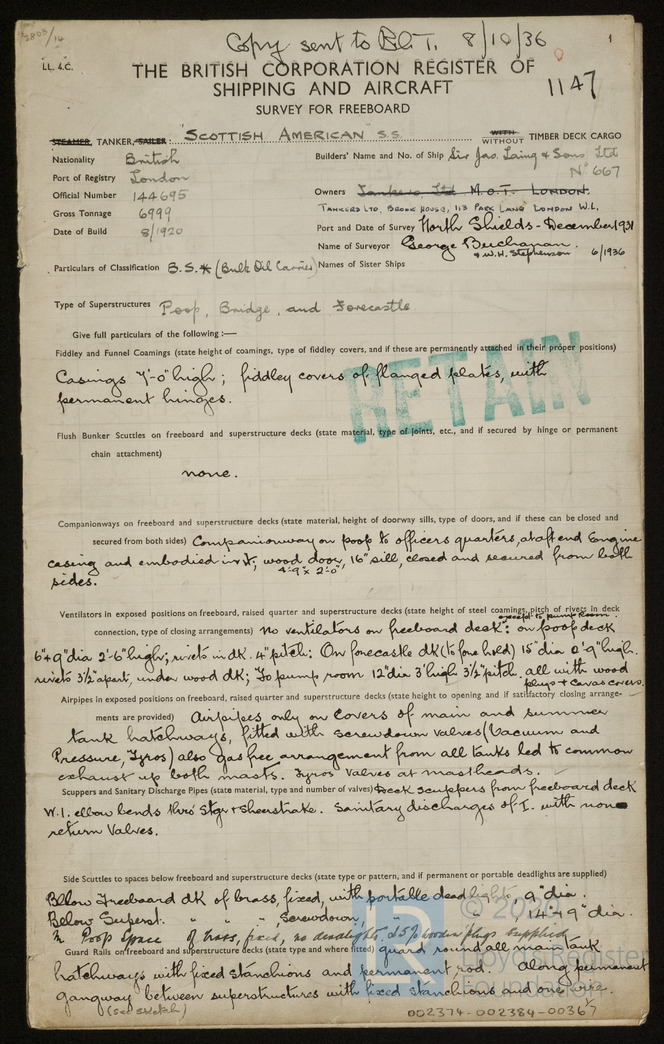 2803/14
Copy sent to B.o.T. 8/10/36
1
LL. 4.C.
THE BRITISH CORPORATION REGISTER OF
SHIPPING AND AIRCRAFT
1147
SURVEY FOR FREEBOARD
STEAMER, TANKER, SAILER: "SCOTTISH AMERICAN" S.S. WITH WITHOUT TIMBER DECK CARGO
Nationality British
Builders' Name and No. of Ship Sir Jas. Laing & Sons Ltd
Port of Registry London
No 667
Official Number 144695
Owners Tankers Ltd M.O.T. LONDON.
Gross Tonnage 6999
TANKERS LTD, BROOK HOUSE, 113 PARK LANE LONDON W.1.
Date of Build 8/1920
Port and Date of Survey North Shields - December 1931
Name of Surveyor George Buchanan.
& W.H. Stephenson 6/1936
Particulars of Classification B.S.* (Bulk Oil Carrier)
Names of Sister Ships
Type of Superstructures Poop, Bridge, and Forecastle
Give full particulars of the following :—
Fiddley and Funnel Coamings (state height of coamings, type of fiddley covers, and if these are permanently attached in their proper positions)
RETAIN
Casings 7'-0" high; fiddley covers of flanged plates, with
permanent hinges.
Flush Bunker Scuttles on freeboard and superstructure decks (state material, type of joints, etc., and if secured by hinge or permanent
chain attachment)
none.
Companionways on freeboard and superstructure decks (state material, height of doorway sills, type of doors, and if these can be closed and
secured from both sides) Companionway on poop to officers quarters, at aft end Engine
casing and embodied in it, wood door, 16" sill, closed and secured from both
4'-9" x 2'-0"
sides.
Ventilators in exposed positions on freeboard, raised quarter and superstructure decks (state height of steel coamings, pitch of rivets in deck
except to pump room.
connection, type of closing arrangements) No ventilators on freeboard deck: on poop deck
6" & 9" dia 2'-6" high; rivets in dk. 4" pitch: On forecastle dk (to fore hold) 15" dia 2'9" high.
rivets 3½" apart, under wood dk; To pump room 12" dia 3' high 3½" pitch. all with wood
plugs & canvas covers.
Airpipes in exposed positions on freeboard, raised quarter and superstructure decks (state height to opening and if satisfactory closing arrange-
ments are provided) Airpipes only on covers of main and summer
tank hatchways, fitted with screwdown valves (Vacuum and
Pressure, Tyros) also gas free arrangement from all tanks led to common
exhaust up both masts. Tyros valves at mastheads.
Scuppers and Sanitary Discharge Pipes (state material, type and number of valves) Deck scuppers from freeboard deck
W.I. elbow bends thro' Stgr & Sheerstrake. Sanitary discharges of I. with none
return Valves.
Side Scuttles to spaces below freeboard and superstructure decks (state type or pattern, and if permanent or portable deadlights are supplied)
Below Freeboard dk of brass, fixed, with portable dead lights, 9" dia.
Below Superst. " " ", Screwdown, " " 14" & 9" dia.
In Poop Space of brass, fixed, no deadlights, wooden plugs supplied
Guard Rails on freeboard and superstructure decks (state type and where fitted) guard round all main tank
hatchways with fixed stanchions and permanent rod. Along permanent
gangway between superstructures with fixed stanchions and one wire.
(see sketch)
© 2020
Lloyd's Register
Foundation
002374-002384-00367